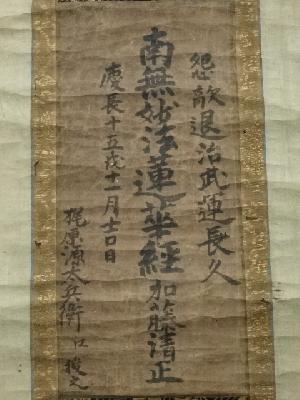 怨敵退治武運長久
南無妙法蓮華經 加藤清正
慶長十五戌十一月十吉日
梶原源太兵衛江 授之